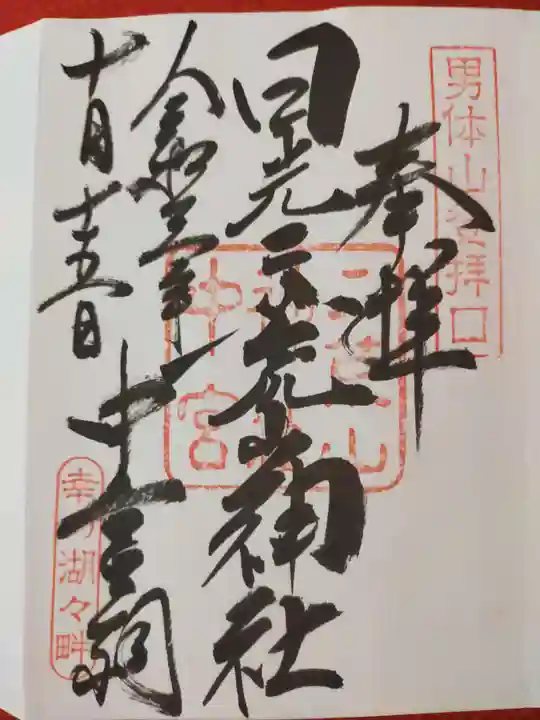 男体山登拝口
奉拝
日光二荒山神社
中宮祠
令和三年
十月十五日
二荒山神社中宮
幸の湖々畔